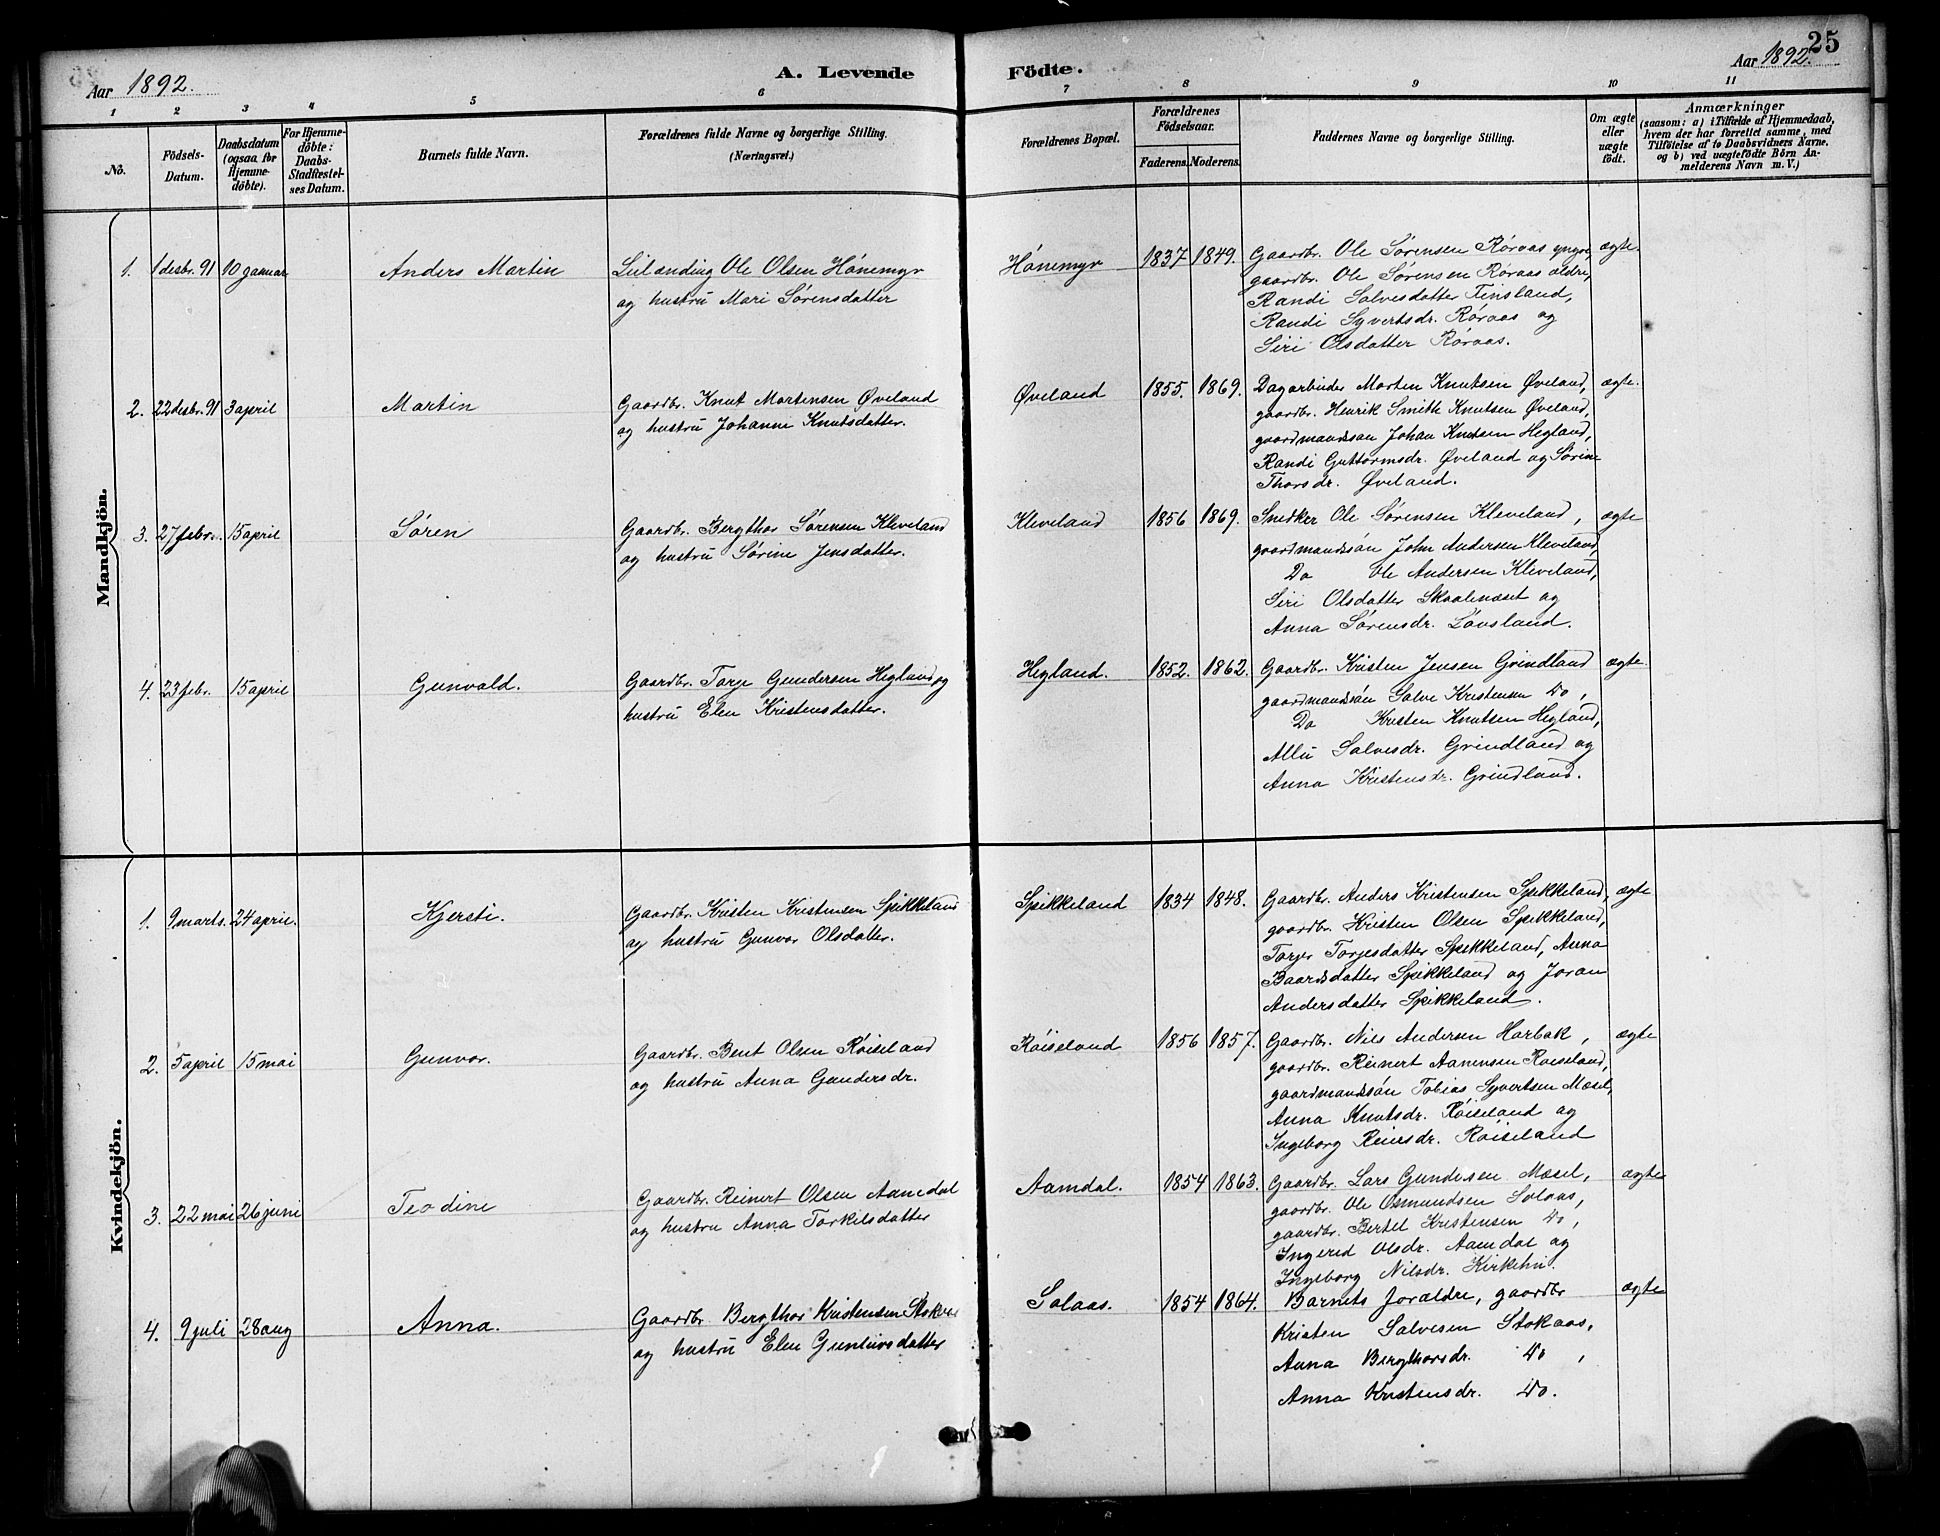 25
Aar 1892.
A. Levende Födte.
Aar 1892.
1 2 3 4 5 6 7 8 9 10 11
No.
Födsels-Datum.
Daabsdatum (ogsaa for Hjemmedöbte).
For Hjemmedöbte: Daabs-Stadfæstelses Datum.
Barnets fulde Navn.
Forældrenes fulde Navne og borgerlige Stilling.
(Næringsvei.)
Forældrenes Bopæl.
Forældrenes Födselsaar.
Faderens. Moderens.
Faddernes Navne og borgerlige Stilling.
Om ægte eller uægte födt.
Anmærkninger
(saasom: a) i Tilfælde af Hjemmedaab,
hvem der har forrettet samme, med
Tilföielse af to Daabsvidners Navne,
og b) ved uægtefödte Börn Anmelderens Navn m. V.)
Mandkjön.
1. 1 desbr. 91 10 januar Anders Martin
Leilænding Ole Olsen Hónemyr
og hustru Mari Sørensdatter
Hónemyr 1837 1849.
Gaardbr. Ole Sørensen Røraas yngre,
gaardbr. Ole Sørensen Røraas ældre,
Randi Salvesdatter Finsland,
Randi Syvertsdr. Røraas og
Siri Olsdatter Røraas.
ægte.
2. 22 desbr. 91 3 april Martin
Gaardbr. Knut Martensen Øveland
og hustru Johanne Knutsdatter.
Øveland 1855. 1869.
Dagarbeider Morten Knutsen Øveland,
gaardbr. Henrik Smith Knutsen Øveland,
gaardmandssøn Johan Knutsen Hegland,
Randi Guttormsdr. Øveland og Sørine
Thorsdr. Øveland.
ægte.
3. 27 febr. 15 april Søren
Gaardbr. Bergthor Sørensen Kleveland
og hustru Sørine Jensdatter.
Kleveland 1856 1869.
Snedker Ole Sørensen Kleveland,
gaardmandssón John Andersen Kleveland,
Do Ole Andersen Kleveland,
Siri Olsdatter Skaalenæset og
Anna Sørensdr. Lóvsland.
ægte
4. 23 febr. 15 april Gunvald.
Gaardbr. Torje Gundersen Hegland og
hustru Elen Kristensdatter.
Hegland. 1852. 1862.
Gaardbr. Kristen Jensen Grindland
gaardmandssón Salve Kristensen Do,
Do Kristen Knutsen Hegland,
Allu Salvesdr. Grindland og
Anna Kristensdr. Grindland.
ægte
Kvindekjön.
1. 9 marts. 24 april. Kjersti.
Gaardbr. Kristen Kristensen Spikkeland
og hustru Gunvor Olsdatter.
Spikkeland 1834 1848.
Gaardbr. Anders Kristensen Spikkeland,
gaardbr. Kristen Olsen Spikkeland,
Torjer Torjesdatter Spikkeland, Anna
Baardsdatter Spikkeland og Joran
Andersdatter Spikkeland.
ægte
2. 5 april 15 mai Gunvor.
Gaardbr. Bent Olsen Róiseland
og hustru Anna Gundersdr.
Róiseland 1856 1857.
Gaardbr. Nils Andersen Harbak,
gaardbr. Reinert Aanensen Roiseland,
gaardmandssón Tobias Syvertsen Mæsel,
Anna Knutsdr. Róiseland og
Ingeborg Reiersdr. Róiseland
ægte
3. 22 mai 26 juni Teodine
Gaardbr. Reinert Olsen Aamdal
og hustru Anna Torkelsdatter
Aamdal. 1854 1863.
Gaardbr. Lars Gundersen Mæsel,
gaardbr. Ole Osmundsen Solaas,
gaardbr. Bertel Kristensen Do,
Ingerid Olsdr. Aamdal og
Ingeborg Nilsdr. Kirkehei.
ægte
4. 9 juli 28 aug Anna.
Gaardbr Bergthor Kristensen
og hustru Elen Gunleivsdatter
Solaas. 1854 1864.
Barnets forældre, gaardbr
Kristen Salvesen Stokaas,
Anna Bergthorsdr. Do,
Anna Kristensdr. Do.
ægte